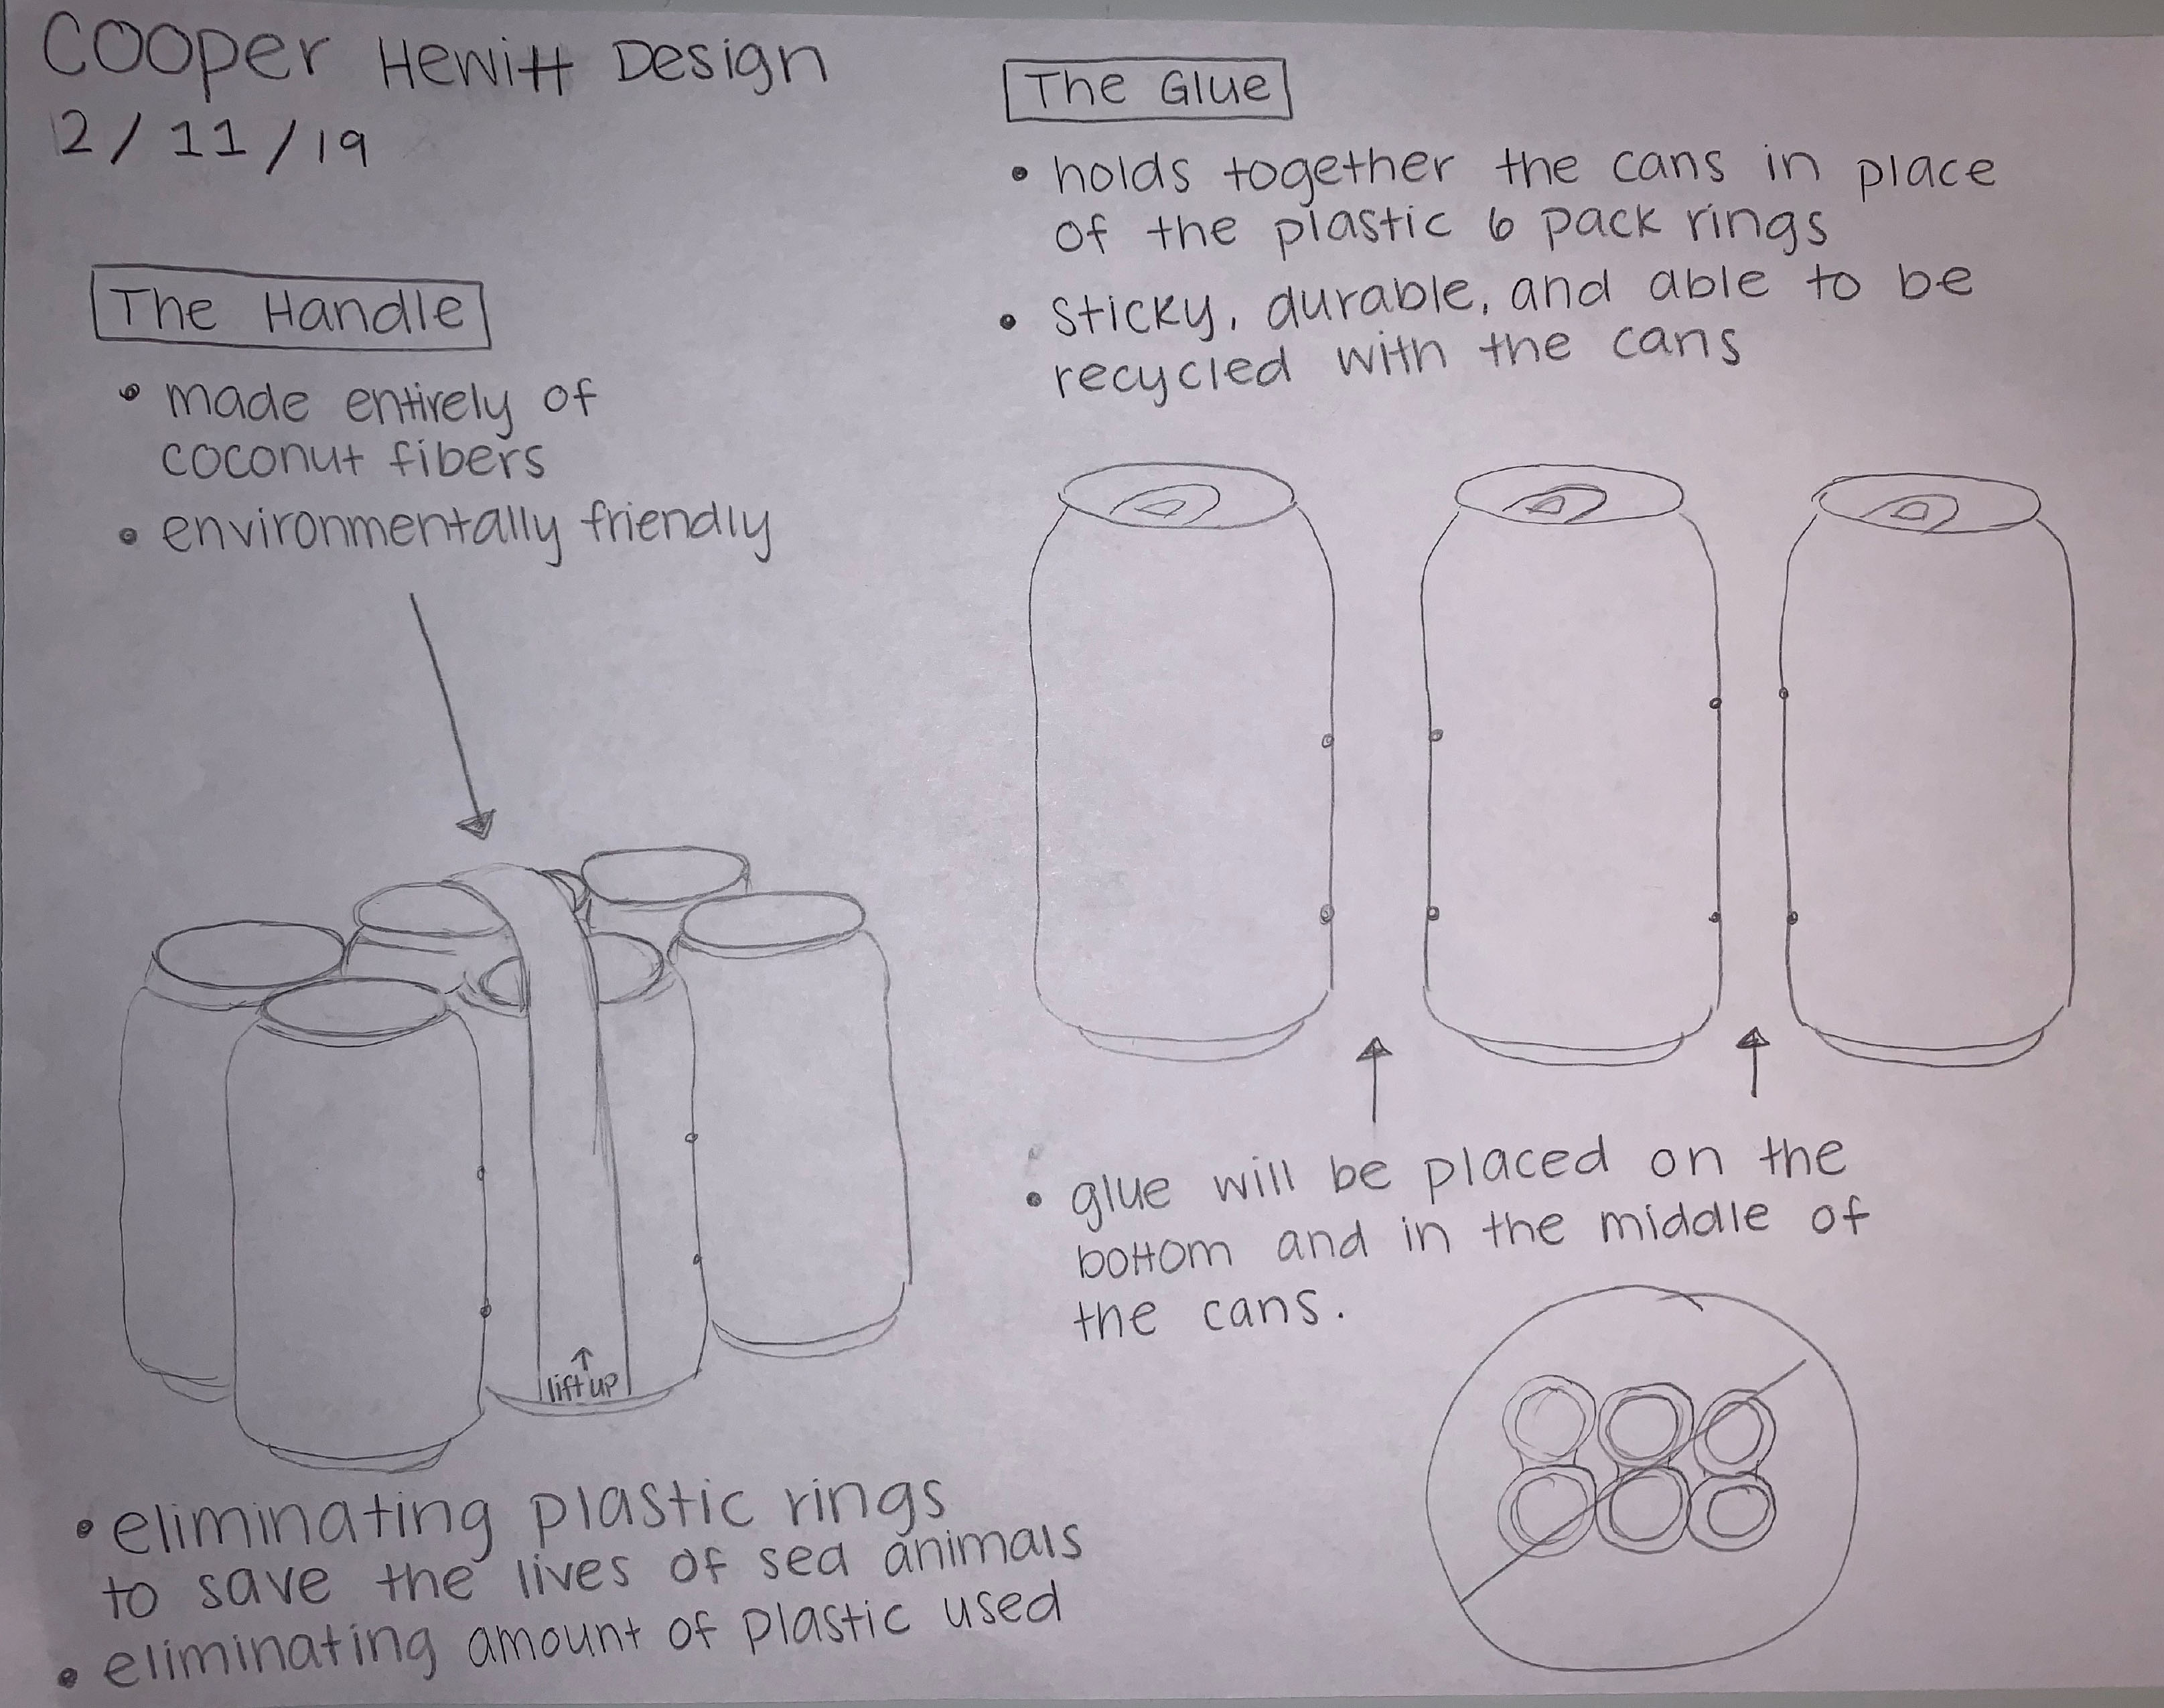 Cooper Hewitt Design
2/11/19
The Handle
• made entirely of
coconut fibers
• environmentally friendly
lift up
• eliminating plastic rings
to save the lives of sea animals
• eliminating amount of plastic used
The Glue
• holds together the cans in place
of the plastic 6 pack rings
• sticky, durable, and able to be
recycled with the cans
• glue will be placed on the
bottom and in the middle of
the cans.